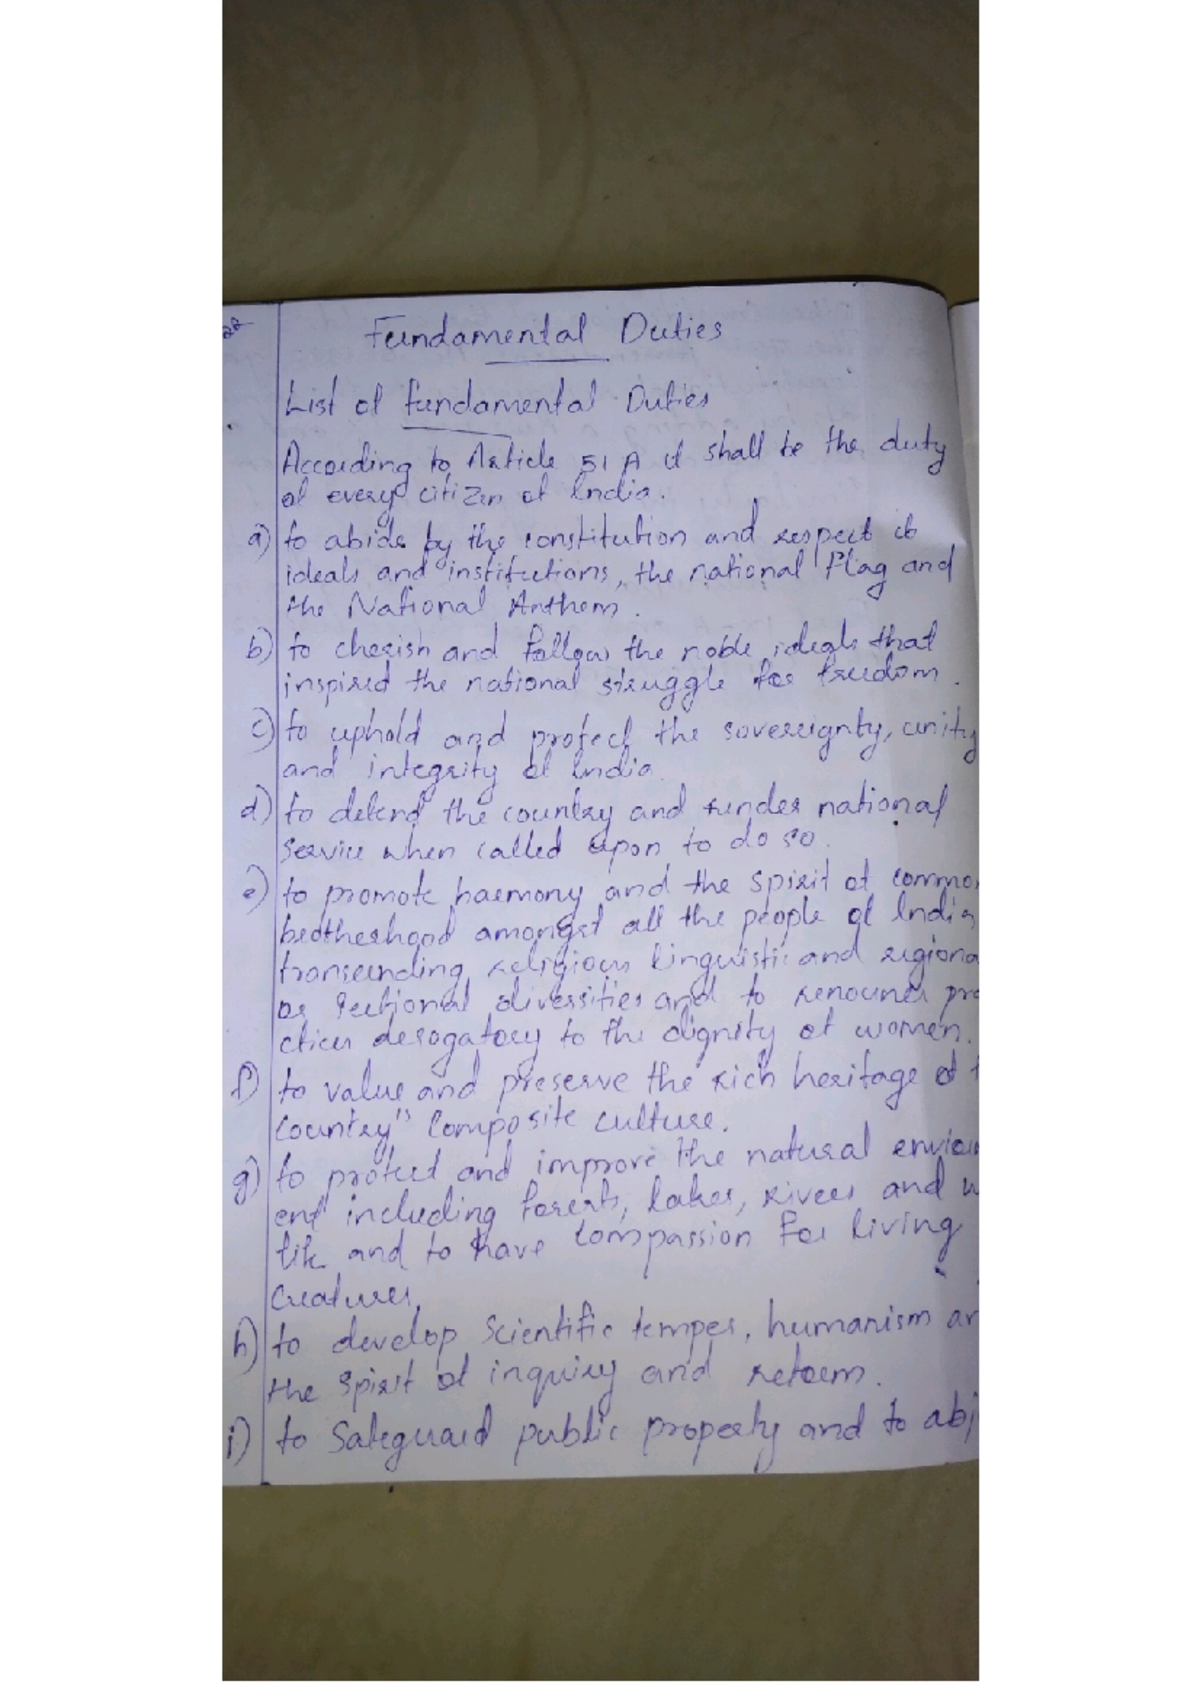 Fundamental Duties
List of fundamental Duties
According to Article 51 A it shall be the duty
of every citizen of India.
a) to abide by the constitution and respect it
ideals and institutions, the national Flag and
the National Anthem.
b) to cherish and follow the noble ideals that
inspired the national struggle for freedom.
c) to uphold and protect the sovereignty, unity
and integrity of India.
d) to defend the country and render national
service when called upon to do so.
e) to promote harmony and the spirit of common
brotherhood amongst all the people of India
transcending religious linguistic and regiona
or sectional diversities and to renounces pra
ctices derogatory to the dignity of women.
f) to value and preserve the rich heritage of t
country's Composite culture.
g) to protect and improve the natural enviou
ent including forests, lakes, rivers and w
life and to have compassion for living
creatures.
h) to develop Scientific temper, humanism an
the spirit of inquiry and reform.
i) to Safeguard public property and to abj